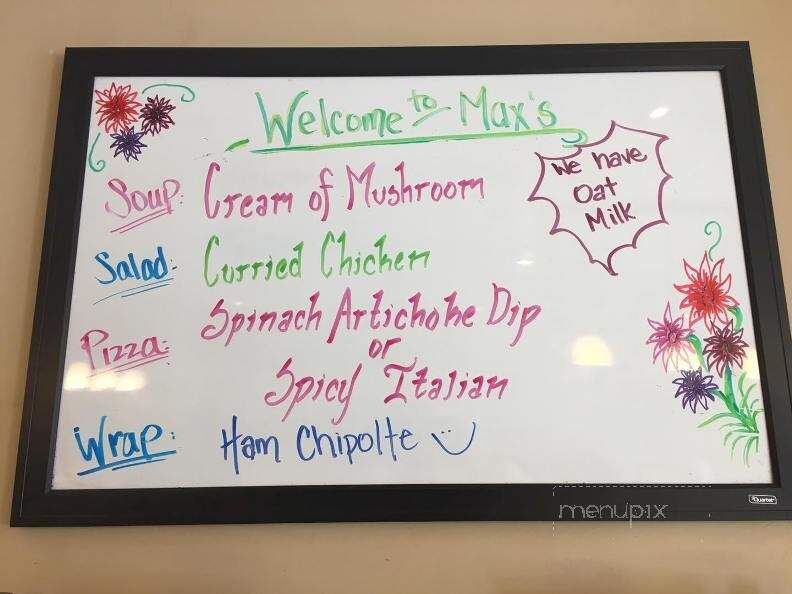 Welcome to Max's
We have
Oat
Milk
Soup: Cream of Mushroom
Salad: Curried Chicken
Pizza: Spinach Artichoke Dip
or
Spicy Italian
Wrap: Ham Chipolte
Quartet
menupix